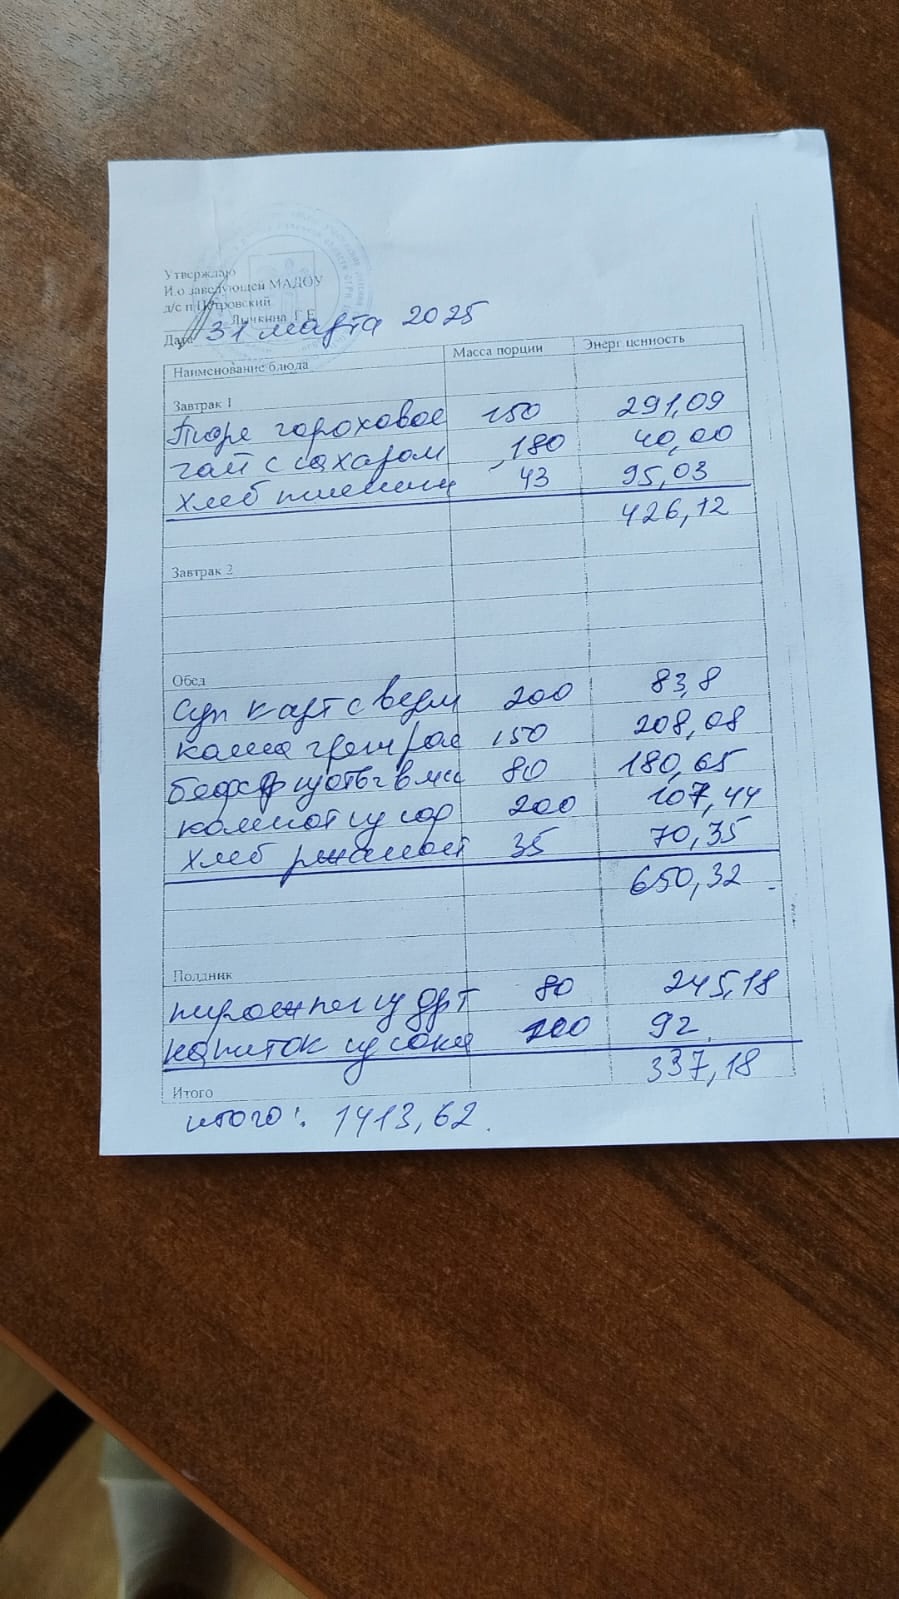 Утверждаю
И.о заведующей МАДОУ
д/с п Петровский
Лычкина Г.Е
Дата 31 марта 2025
Наименование блюда Масса порции Энерг ценность
Завтрак 1
Пюре гороховое 150 291,09
чай с сахаром 180 40,00
хлеб пшенич 43 95,03
426,12
Завтрак 2
Обед
Суп карт с верм 200 83,8
каша греч рас 150 208,08
80 180,65
компот су 200 107,44
хлеб ржаной 35 70,35
650,32
Полдник
80 245,18
напиток 200 92
337,18
Итого
итого: 1413,62.